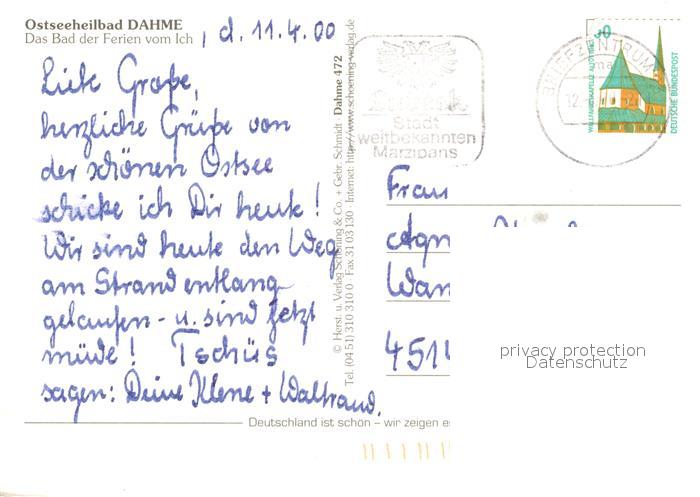 Ostseeheilbad DAHME
Das Bad der Ferien vom Ich, d. 11.4.00
Liebe Große,
herzliche Grüße von
der schönen Ostsee
schicke ich Dir heute!
Wir sind heute den Weg
am Strand entlang
gelaufen - u. sind jetzt
müde! Tschüs
sagen: Deine Klene + Waltraud.
© Herst. u. Verlag Schöning & Co. + Gebr. Schmidt · Dahme 472
Tel. (04 51) 310 310 0 · Fax 31 03 130 · Internet: http://www.schoening-verlag.de
Stadt
weltbekannten
Marzipans
BRIEFZENTRUM
12.
DEUTSCHE BUNDESPOST
Frau
Agn
Wan
451
privacy protection
Datenschutz
Deutschland ist schön – wir zeigen es